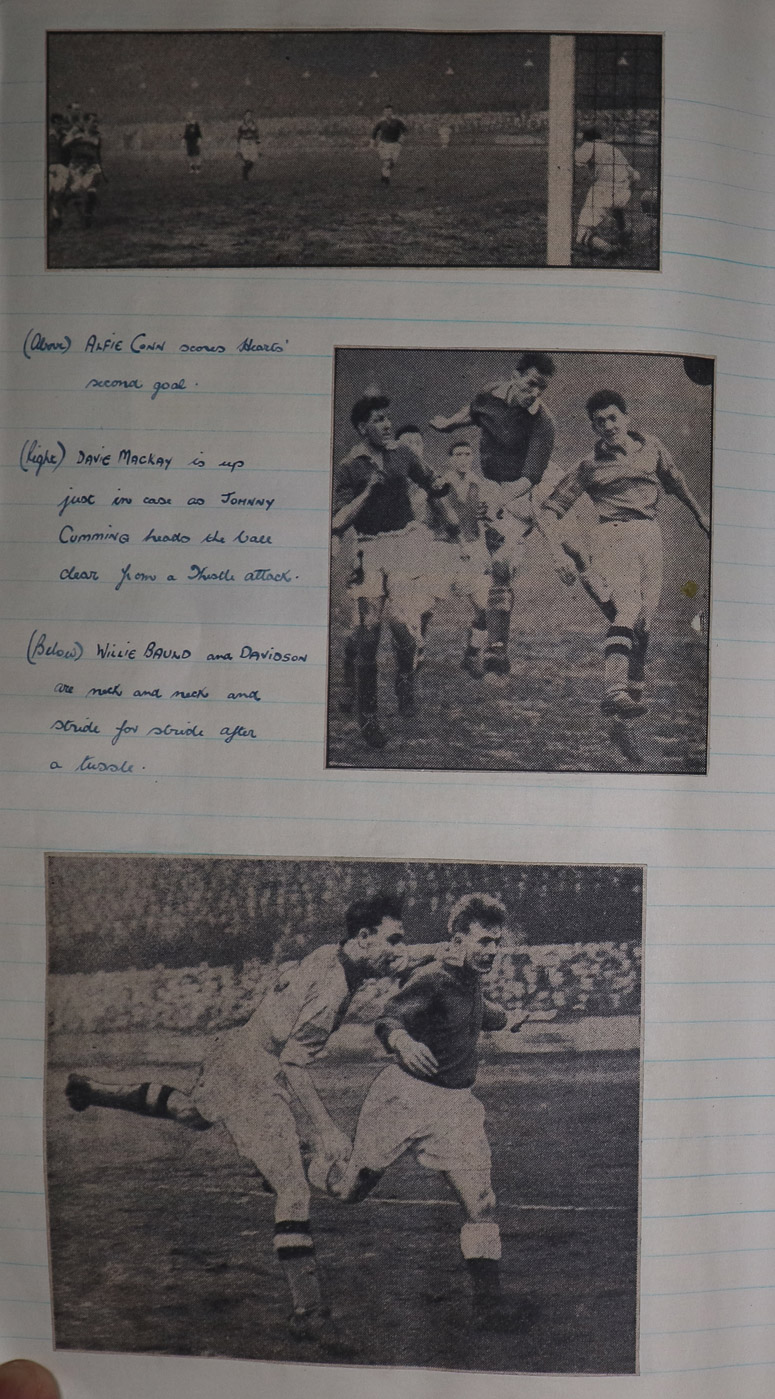 (Above) ALFIE CONN scores Hearts'
second goal.
(Right) DAVIE MACKAY is up
just in case as JOHNNY
CUMMING heads the ball
clear from a Thistle attack.
(Below) WILLIE BAULD and DAVIDSON
are neck and neck and
stride for stride after
a tussle.